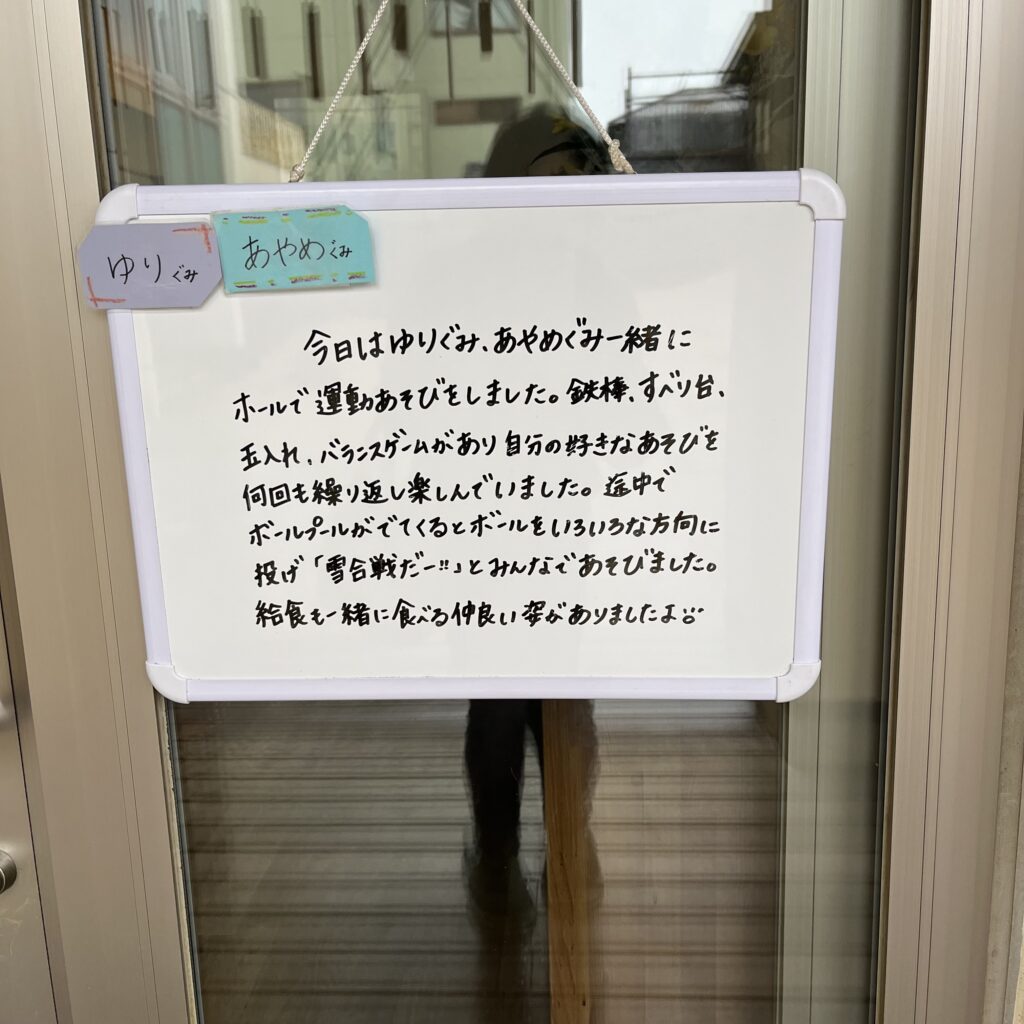 ゆりぐみ
あやめぐみ
今日はゆりぐみ、あやめぐみ一緒に
ホールで運動あそびをしました。鉄棒、すべり台、
玉入れ、バランスゲームがあり自分の好きなあそびを
何回も繰り返し楽しんでいました。途中で
ボールプールがでてくるとボールをいろいろな方向に
投げ「雪合戦だー!!」とみんなであそびました。
給食も一緒に食べる仲良い姿がありましたよ